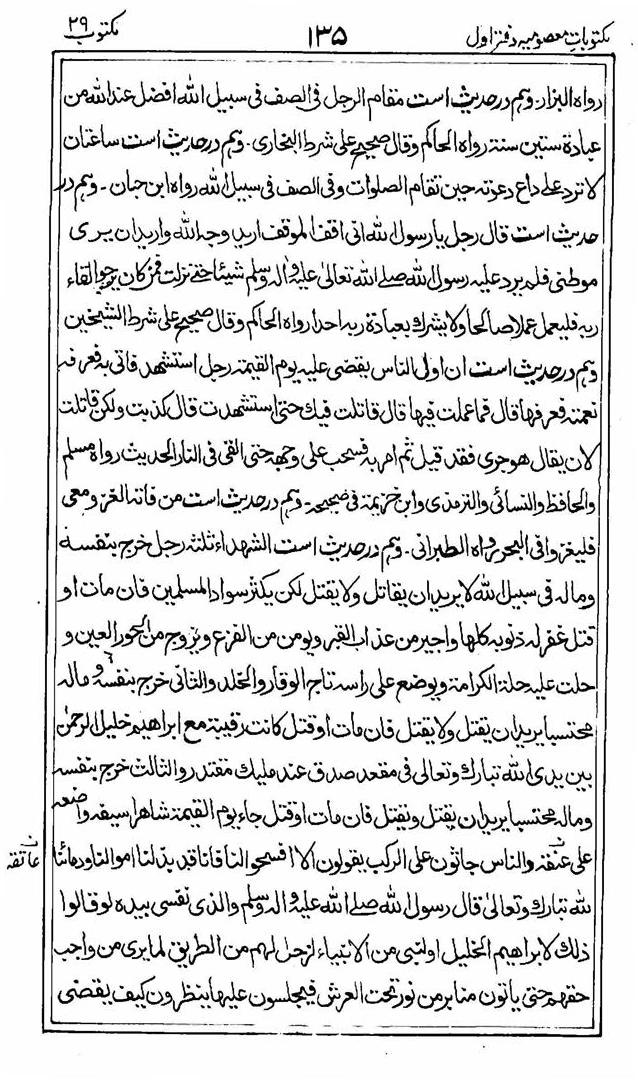 مکتوبات معصومیہ دفتر اول ۱۳۵ مکتوب ۲۹
رواہ البزار۔ وہم در حدیث است مقام الرجل فی الصف فی سبیل اللہ افضل عند اللہ من
عبادۃ ستین سنۃ رواہ الحاکم وقال صحیح علی شرط البخاری۔ وہم در حدیث است ساعتان
لا ترد علی داع دعوتہ حین تقام الصلوات وفی الصف فی سبیل اللہ رواہ ابن حبان۔ وہم در
حدیث است قال رجل یا رسول اللہ انی اقف الموقف ارید وجہ اللہ وارید ان یری
موطنی فلم یرد علیہ رسول اللہ صلے اللہ تعالیٰ علیہ وآلہ وسلم شیئا حتے نزلت فمن کان یرجوا لقاء
ربہ فلیعمل عملا صالحا ولا یشرک بعبادۃ ربہ احدا رواہ الحاکم وقال صحیح علی شرط الشیخین
وہم در حدیث است ان اول الناس یقضی علیہ یوم القیمۃ رجل استشهد فاتی بہ فعرفہ
نعمتہ فعرفها قال فما عملت فیها قال قاتلت فیک حتی استشهدت قال کذبت ولکن قاتلت
لان یقال هو جری فقد قیل ثم امر بہ فسحب علی وجهہ حتی القی فی النار الحدیث رواہ مسلم
والحافظ والنسائی والترمذی وابن خزیمۃ فی صحیحہ۔ وہم در حدیث است من فاتہ الغزو معی
فلیغزوا فی البحر رواہ الطبرانی۔ وہم در حدیث است الشهداء ثلثۃ رجل خرج بنفسہ
ومالہ فی سبیل اللہ لا یرید ان یقاتل ولا یقتل لکن یکثر سواد المسلمین فان مات او
قتل غفر لہ ذنوبہ کلها واجیر من عذاب القبر ویومن من الفزع ویزوج من الحور العین و
حلت علیہ حلۃ الکرامۃ ویوضع علی راسہ تاج الوقار والخلد والثانی خرج بنفسہ و مالہ
محتسبا یرید ان یقتل ولا یقتل فان مات او قتل کانت رقبیتہ مع ابراهیم خلیل الرحمٰن
بین یدی اللہ تبارک وتعالی فی مقعد صدق عند ملیک مقتدر والثالث خرج بنفسہ
ومالہ محتسبا یرید ان یقتل ویقتل فان مات او قتل جاء یوم القیمۃ شاهرا سیفہ واضعہ
علی عنقہ والناس جاثون علی الرکب یقولون الا افسحوا لنا فانا قد بذلنا اموالنا ودمائنا
عاتقہ
للہ تبارک وتعالیٰ قال رسول اللہ صلے اللہ علیہ وآلہ وسلم والذی نفسی بیدہ لو قالوا
ذلک لابراهیم الخلیل او لنبی من الانبیاء لزحل لهم من الطریق لما یری من واجب
حقهم حتی یاتون منابر من نور تحت العرش فیجلسون علیها ینظرون کیف یقضی